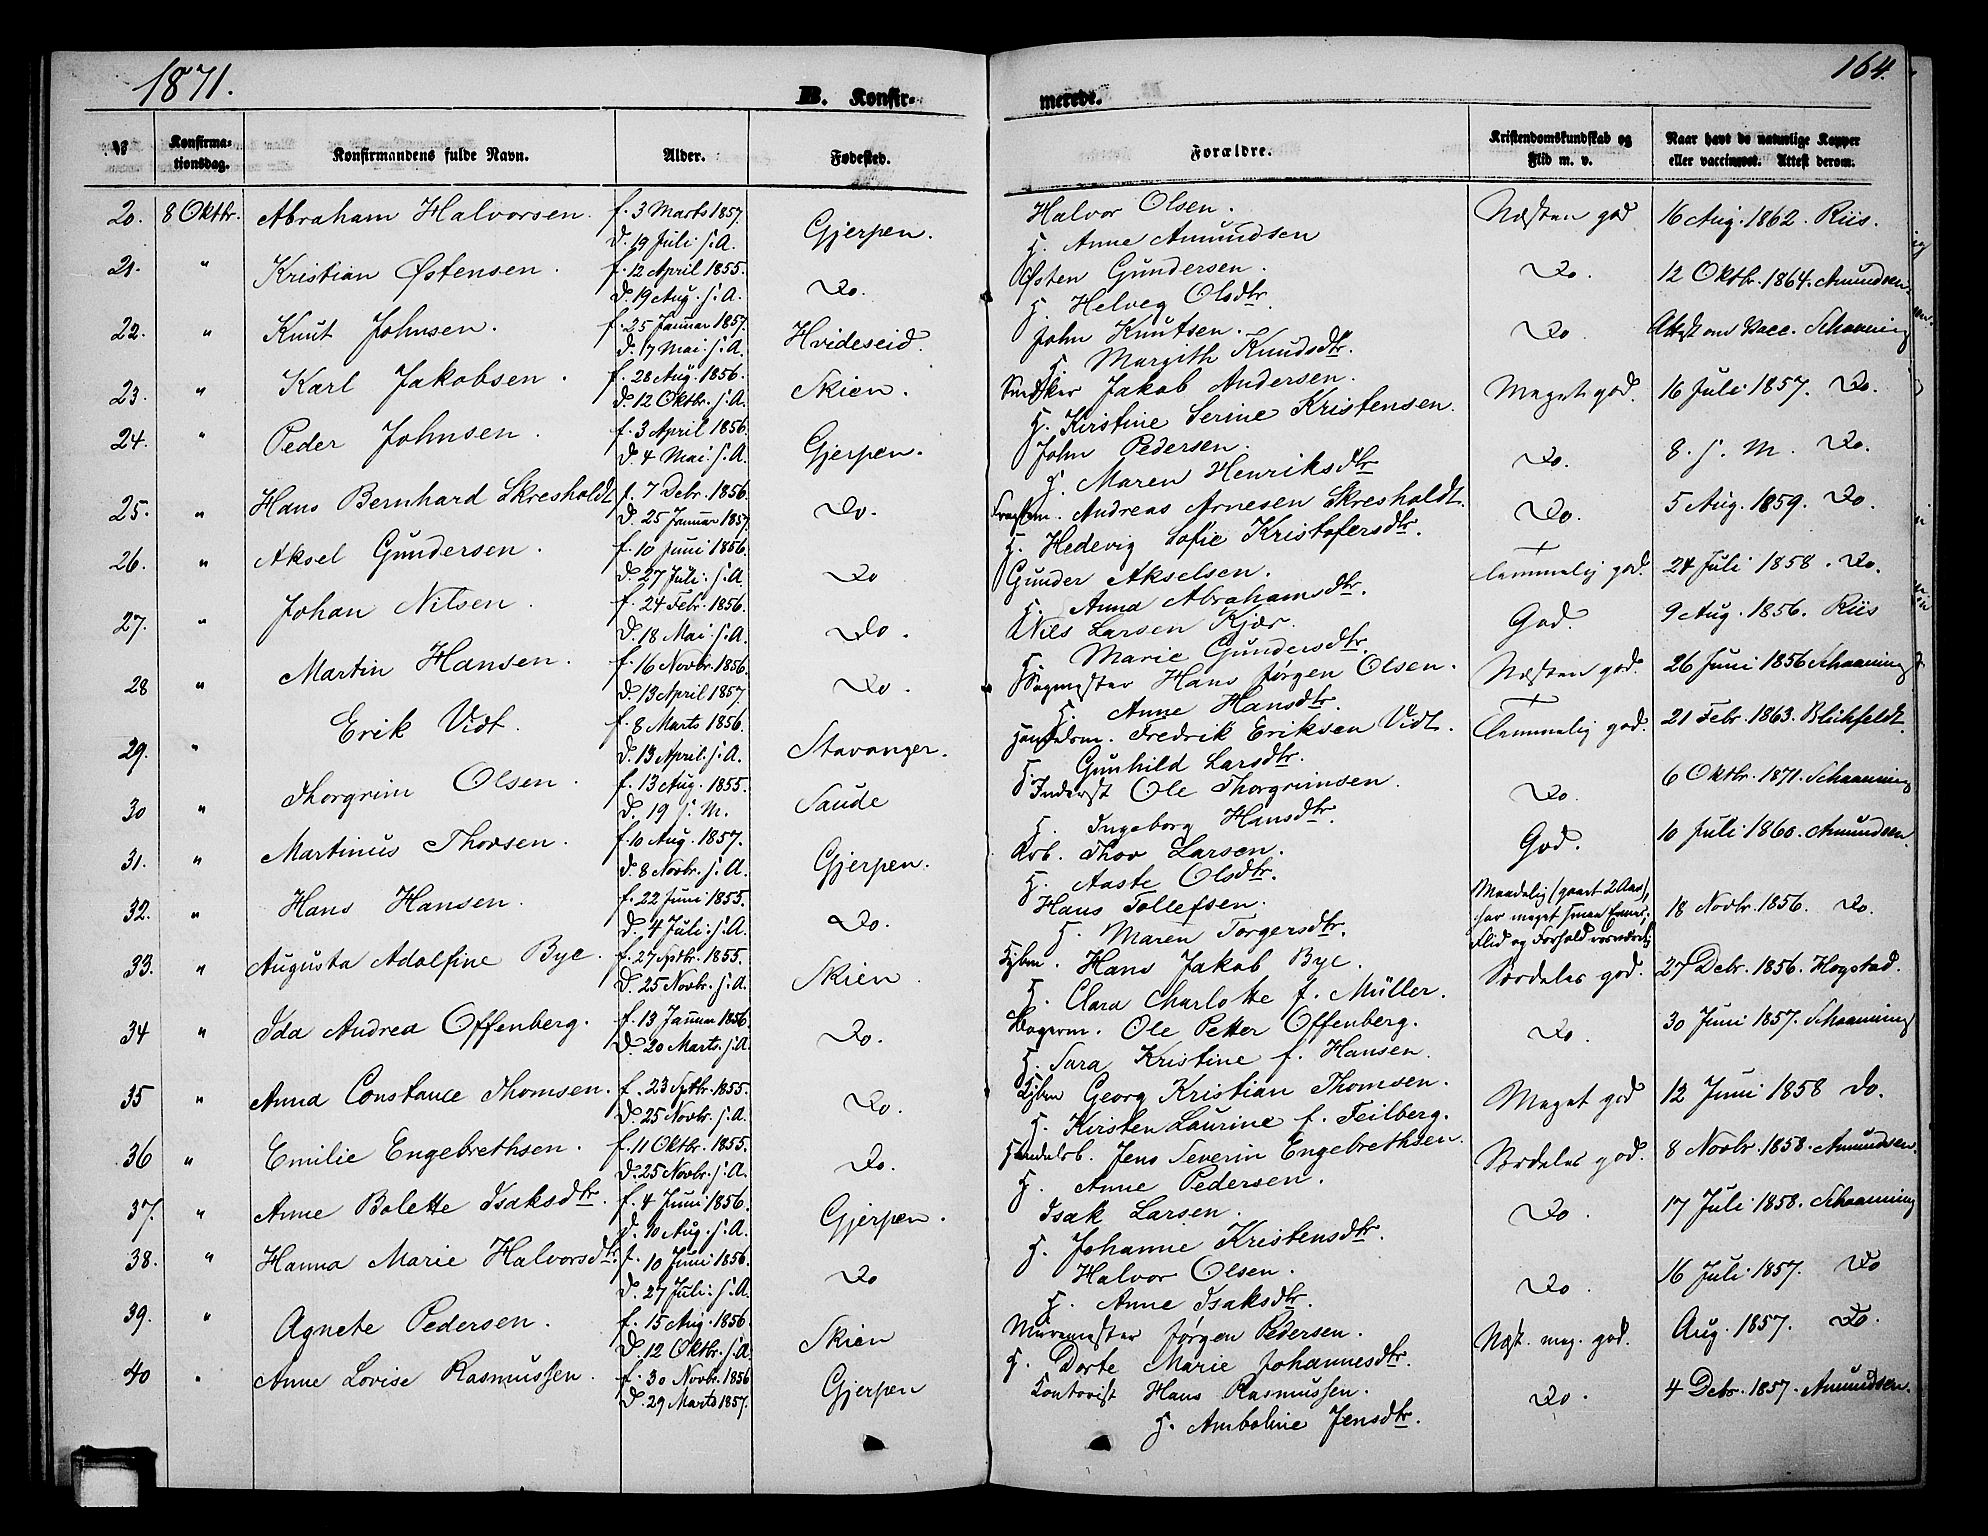 1871.
164.
B. Konfir-
merede.
№
Konfirma-
tionsdag.
Konfirmandens fulde Navn.
Alder.
Fødested.
Forældre.
Kristendomskundskab og
Flid m. v.
Naar havt de naturlige Kopper
eller vaccineret. Attest derom.
20. 8 Oktbr. Abraham Halvorsen. f. 3 Marts 1857. Gjerpen. Halvor Olsen. Næsten god 16 Aug. 1862. Riis.
D. 19 Juli s. A. H. Anne Amundsen
21. " Kristian Østensen. f. 12 April 1855. Do. Østen Gundersen. Do. 12 Oktbr. 1864. Amundsen.
D. 19 Aug. s. A. H. Helveg Olsdtr.
22. " Knut Johnsen. f. 25 Januar 1857. Hvideseid. John Knutsen. Do Attest om Vacc. Schaaning
D. 17 Mai. s. A. H. Margith Knudsdtr.
23. " Karl Jakobsen. f. 28 Aug. 1856. Skien. Snedker Jakob Andersen. Meget god. 16 Juli 1857. Do.
D. 12 Oktbr. s. A. H. Kirstine Serine Kristensen.
24. " Peder Johnsen. f. 3 April 1856. Gjerpen. John Pedersen. Do. 8. s. M. Do.
D. 4 Mai. s. A. H. Maren Henriksdtr
25. " Hans Bernhard Skresholdt f. 7 Debr. 1856. Do. Andreas Arnesen Skresholdt. Do. 5 Aug. 1859. Do.
D. 25 Januar 1857. H. Hedevig Sofie Kristofersdtr.
26. " Aksel Gundersen. f. 10 Juni 1856. Do Gunder Akselsen. Temmelig god. 24 Juli 1858. Do.
D. 27 Juli. s. A. H. Anna Abrahamsdtr.
27. " Johan Nilsen. f. 24 Febr. 1856. Do. Nils Larsen Kjær. God. 9 Aug. 1856. Riis
D. 18 Mai. s. A. H. Marie Gundersdtr.
28 " Martin Hansen. f. 16 Novbr. 1856. Do. Sagmester Hans Jørgen Olsen. Næsten god. 26 Juni 1856 Schaaning
D. 13 April 1857. H. Anne Hansdtr.
29. " Erik Vidt. f. 8 Marts 1856. Stavanger. Handelsm. Fredrik Eriksen Vidt. Temmelig god. 21 Febr. 1863. Blichfeldt.
D. 13 April. s. A. H. Gunhild Larsdtr.
30 " Thorgrim Olsen. f. 13 Aug. 1855. Saude Inderst Ole Thorgrimsen. Do. 6 Oktbr. 1871. Schaaning
D. 19 s. M. H. Ingeborg Hansdtr.
31. " Martinus Thorsen. f. 10 Aug. 1857. Gjerpen. Arb. Thor Larsen. God. 10 Juli 1860. Amundsen.
D. 8 Novbr. s. A. H. Aaste Olsdtr.
32. " Hans Hansen. f. 22 Juni 1855. Do. Hans Tollefsen. Maadelig (gaaet 2 Aar), 18 Novbr. 1856. Do.
har meget smaa Evner;
D. 4 Juli. s. A. H. Maren Torgersdtr. Flid og Forhold rosværdig
33. " Augusta Adolfine Bye. f. 27 Sptbr. 1855. Skien. Kjbm. Hans Jakob Bye. Særdeles god. 27 Debr. 1856. Hogstad.
D. 25 Novbr. s. A. H. Clara Charlotte f. Müller.
34 " Ida Andrea Offenberg. f. 13 Januar 1856. Do. Bagerm. Ole Petter Offenberg. Do. 30 Juni 1857. Schaaning
D. 20 Marts. s. A. H. Sara Kristine f. Hansen.
35 " Anna Constance Thomsen. f. 23 Sptbr. 1855. Do. Kjbm Georg Kristian Thomsen. Meget god 12 Juni 1858 Do.
D. 25 Novbr. s. A. H. Kirsten Laurine f. Feilberg.
36 " Emilie Engebrethsen. f. 11 Oktbr. 1855. Do. Handelsb. Jens Severin Engebrethsen. Særdeles god. 8 Novbr. 1858. Amundsen.
D. 25 Novbr. s. A. H. Anne Pedersen.
37. " Anne Bolette Isaksdtr. f. 4 Juni 1856. Gjerpen. Isak Larsen. Do. 17 Juli 1858. Schaaning
D. 10 Aug. s. A. H. Johanne Kristensdtr.
38. " Hanna Marie Halvorsdtr. f. 10 Juni 1856. Do Halvor Olsen. Do. 16 Juli 1857. Do
D. 27 Juli. s. A. H. Anne Isaksdtr.
39. " Agnete Pedersen. f. 15 Aug. 1856. Skien Muremester Jørgen Pedersen. Næst. meg. god. Aug. 1857. Do.
D. 12 Oktbr. s. A. H. Dorte Marie Johannesdtr.
40 " Anne Lovise Rasmussen. f. 30 Novbr. 1856 Gjerpen Kontorist Hans Rasmussen. Do. 4 Debr. 1857. Amundsen.
D. 29 Marts 1857. H. Amboline Jensdtr.